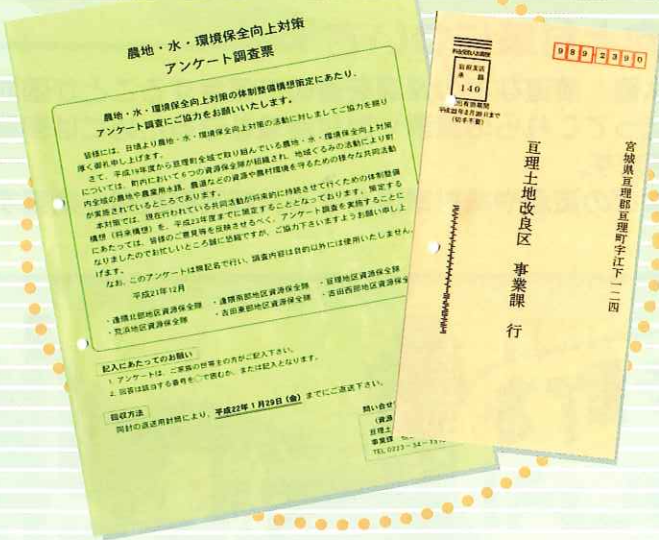 農地・水・環境保全向上対策
アンケート調査票
農地・水・環境保全向上対策の体制整備構想策定にあたり、
アンケート調査にご協力をお願いいたします。
皆様には、日頃より農地・水・環境保全向上対策の活動に対しましてご協力を賜り
厚く御礼申し上げます。
さて、平成19年度から亘理町全域で取り組んでいる農地・水・環境保全向上対策
については、町内において6つの資源保全隊が組織され、地域ぐるみの活動により町
内全域の農地や農業用水路、農道などの資源や農村環境を守るための様々な共同活動
が実施されているところであります。
本対策では、現在行われている共同活動が将来的に持続させて行くための体制整備
構想(将来構想)を、平成23年度までに策定することとなっております。策定する
にあたっては、皆様のご意見等を反映させるべく、アンケート調査を実施することに
なりましたのでお忙しいところ誠に恐縮ですが、ご協力下さいますようお願い申し上
げます。
なお、このアンケートは無記名で行い、調査内容は目的以外には使用いたしません。
平成21年12月
・逢隈北部地区資源保全隊 ・逢隈南部地区資源保全隊 ・亘理地区資源保全隊
・荒浜地区資源保全隊 ・吉田東部地区資源保全隊 ・吉田西部地区資源保全
記入にあたってのお願い
1. アンケートは、ご家族の世帯主の方がご記入下さい。
2. 回答は該当する番号を○で囲むか、または記入となります。
回収方法
同封の返送用封筒により、平成22年1月29日(金)までにご返送下さい。
問い合せ
(資源
亘理土
事業課
TEL 0223-34-
989-2390
料金受取人払郵便
亘理支店
承認
140
差出有効期間
平成22年2月28日まで
(切手不要)
宮城県亘理郡亘理町字江下一二四
亘理土地改良区 事業課 行